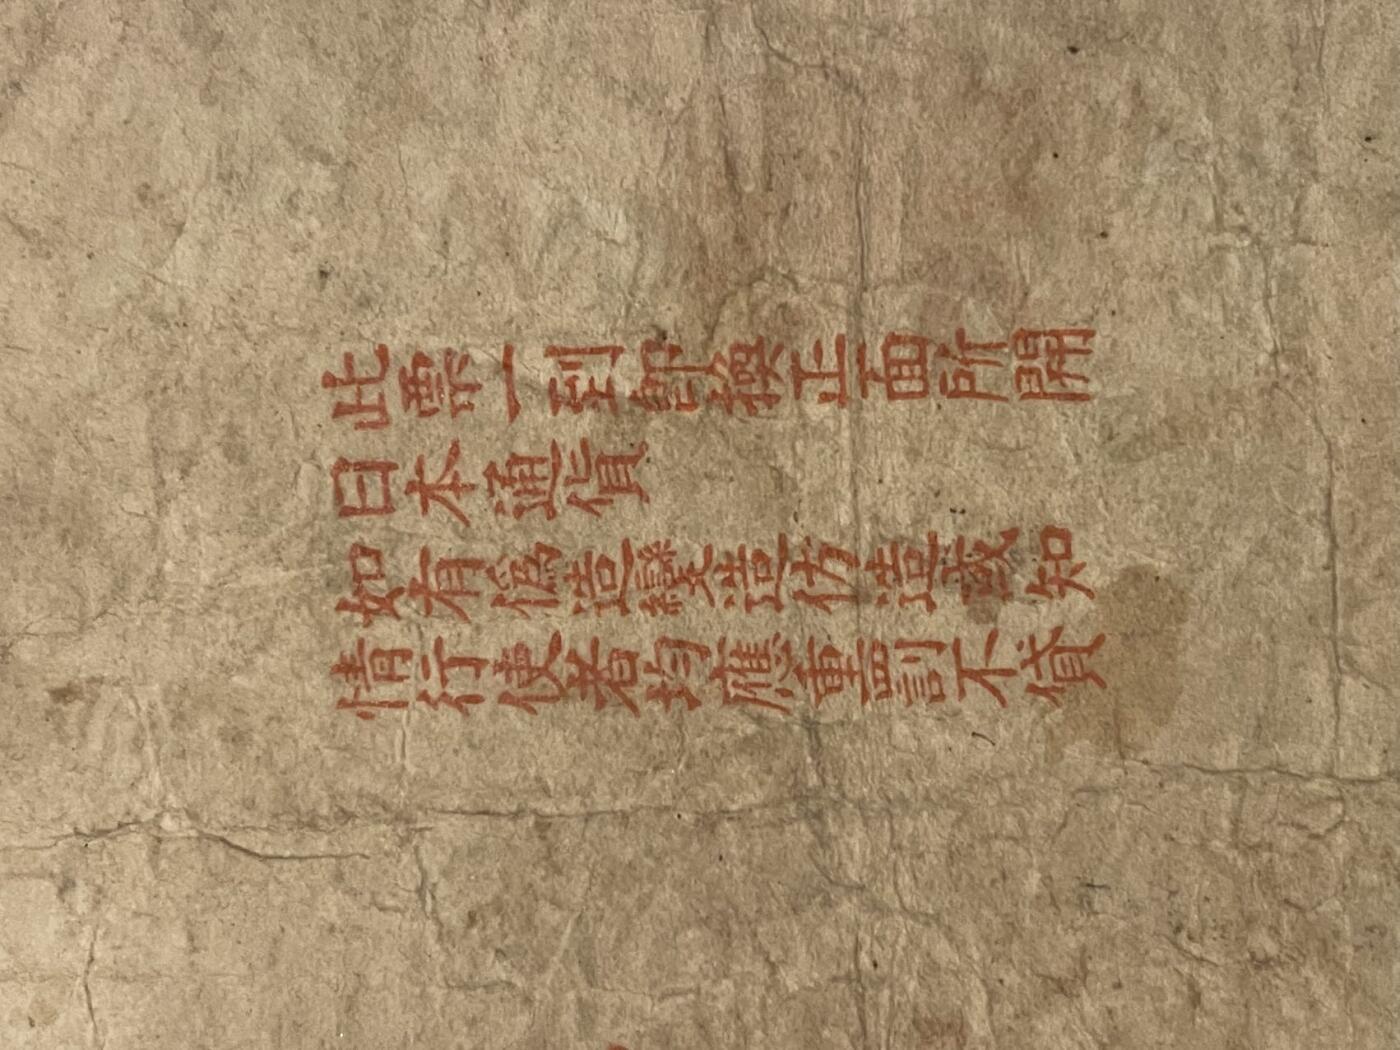 此票一到即換正面所開
日本通貨
如有偽造變造仿造故知
情行使者均應重罰不貸